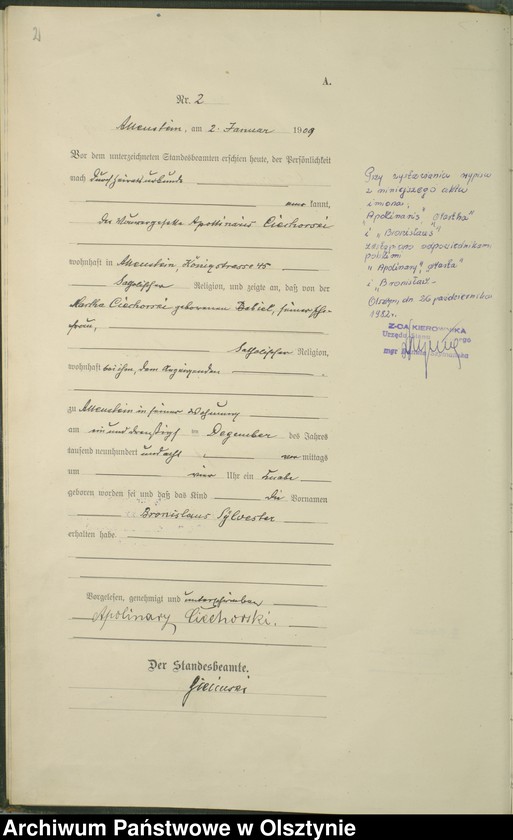 2
A.
Nr. 2
Allenstein, am 2. Januar 1909
Vor dem unterzeichneten Standesbeamten erschien heute, der Persönlichkeit
nach durch Heiratsurkunde
anerkannt,
der Maurergeselle Apollinaris Ciechorski
wohnhaft in Allenstein, Königstrasse 45
katholischer Religion, und zeigte an, daß von der
Martha Ciechorski geborenen Babiel, seiner Ehe-
frau,
katholischer Religion,
wohnhaft bei ihm, dem Anzeigenden
zu Allenstein in seiner Wohnung
am einunddreißigsten Dezember des Jahres
tausend neunhundert und acht vormittags
um vier Uhr ein Knabe
geboren worden sei und daß das Kind die Vornamen
Bronislaus Sylvester
erhalten habe.
Vorgelesen, genehmigt und unterschrieben
Apolinary Ciechorski.
Der Standesbeamte.
Przy wystawianiu wypisu
z niniejszego aktu
imiona:
"Apolinaris" "Martha"
i "Bronislaus"
zastąpiono odpowiednikami
polskimi
"Apolinary", "Marta"
i "Bronisław" -
Olsztyn, dn. 26 października
1982 r.
Z-CA KIEROWNIKA
Archiwum Państwowe w Olsztynie